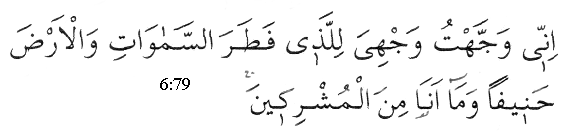 اِنّ۪ي وَجَّهْتُ وَجْهِيَ لِلَّذ۪ي فَطَرَ السَّمٰوَاتِ وَالْاَرْضَ
حَن۪يفاً وَمَٓا اَنَا۬ مِنَ الْمُشْرِك۪ينَۚ
6:79